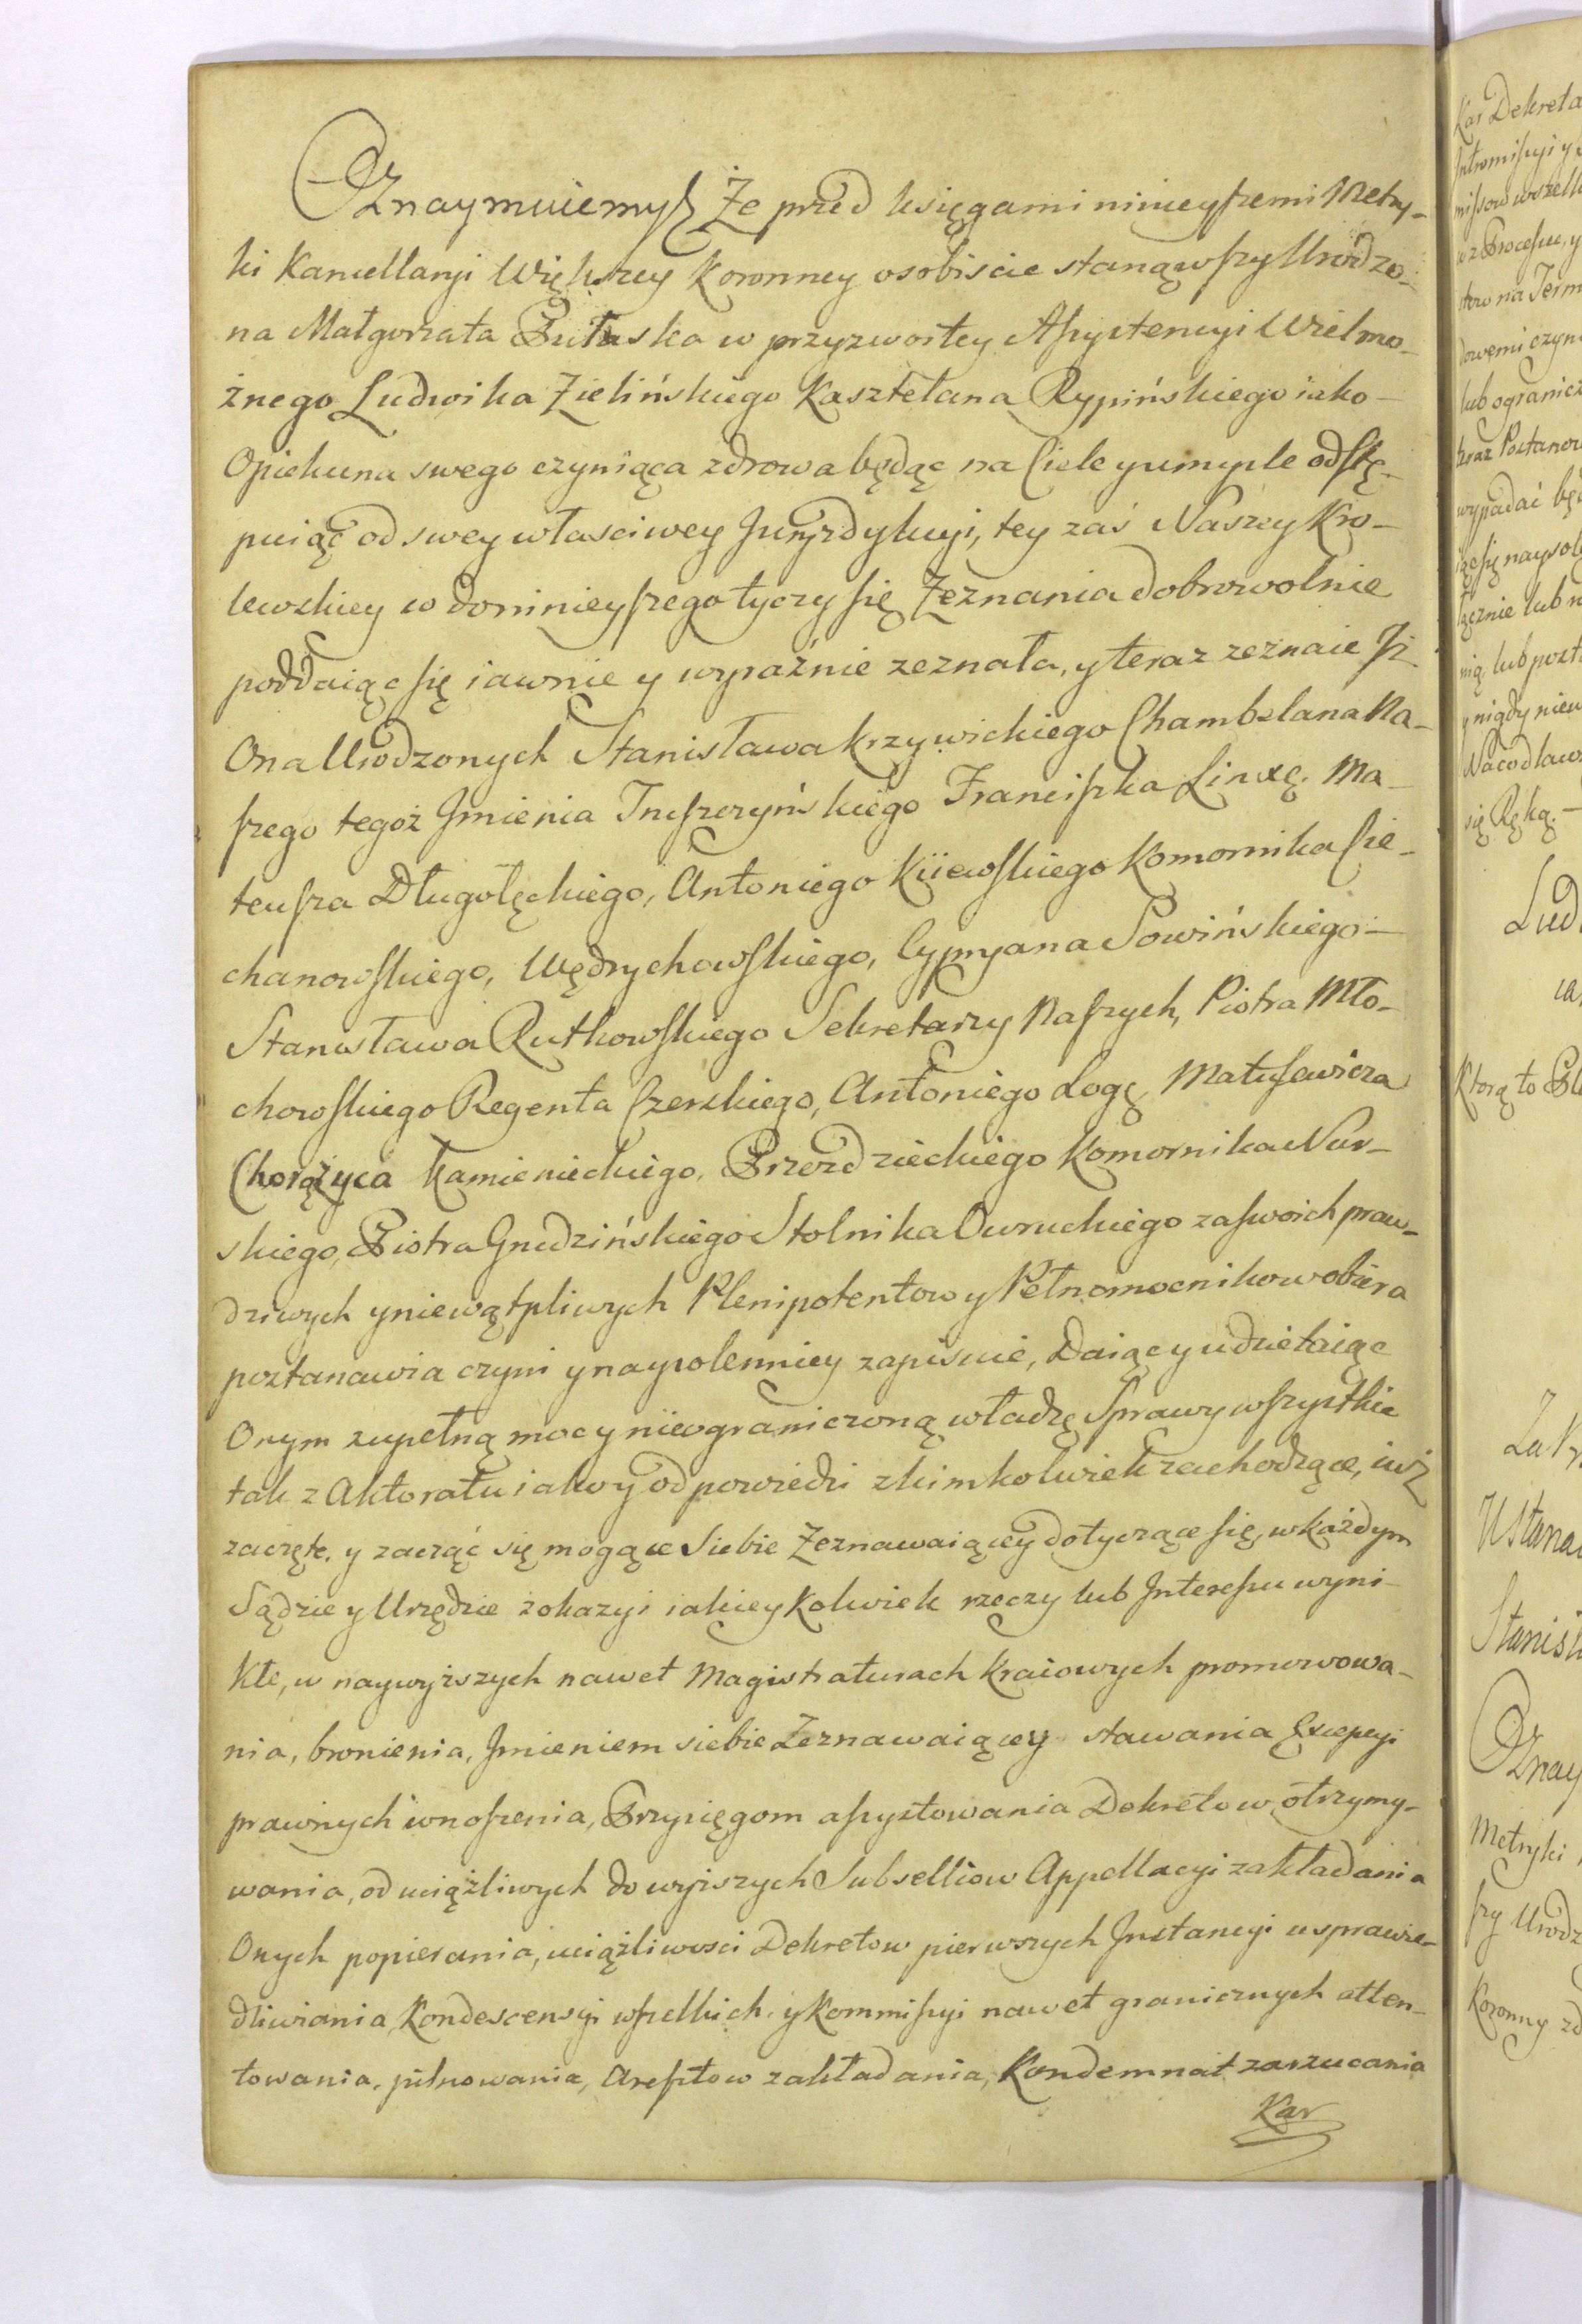 Oznaymuiemy Że przed księgami ninieyszemi Metry-
ki Kancellaryi Większey Koronney osobiscie stanąwszy Urodzo-
na Małgorzata Pułaska w przyzwoitey Assystencyi Wielmo-
żnego Ludwika Zielińskiego Kasztelana Rypińskiego iako
Opiekuna swego czyniąca zdrowa będąc na Ciele y umysle odstę-
puiąc od swey własciwey Juryzdykcyi, tey zaś Naszey Kro-
lewskiey w do ninieyszego tyczy się Zeznania dobrowolnie
poddaiąc się iawnie y wyraźnie zeznała, y teraz zeznaie Jż
Ona Urodzonych Stanisława Krzywickiego Chambelana Na-
szego tegoż Jmienia Truszczyńskiego Franciszka Linxę. Ma-
teusza Długołęckiego, Antoniego Kiiewskiego Komornika Cie-
chanowskiego, Wędrychowskiego, Cypryana Sowińskiego
Stanisława Rutkowskiego Sekretarzy Naszych, Piotra Mło-
chowskiego Regenta Czerskiego, Antoniego Logę, Matusewicza
Chorążyca Kamienieckiego, Przezdzieckiego Komornika Nur-
skiego, Piotra Gnudzińskiego Stolnika Owruckiego za swoich praw-
dziwych y niewątpliwych Plenipotentow y Pełnomocnikow obiera
postanawia czyni y naysolenniey zapisuie, Daiąc y udzielaiąc
Onym zupełną moc y nieograniczoną władzę Sprawy wszystkie
tak z Aktoratu iako y odpowiedzi z kimkolwiek zachodzące, iuż
zaczęte, y zacząć się mogące Siebie Zeznawaiącey dotyczące się, w każdym
Sądzie y Urzędzie z okazyi iakieykolwiek rzeczy lub Jnteressu wyni-
kłe, w naywyższych nawet Magistraturach kraiowych promowowa-
nia, bronienia, Jmieniem siebie Zeznawaiącey stawania Excepcyi
prawnych wnoszenia, Przysięgom assystowania Dekretow otrzymy-
wania, od uciążliwych do wyższych Subselliow Appellacyi zakładania
Onych popierania, uciążliwosci Dekretow pierwszych Jnstancyi usprawie-
dliwiania Kondescensyi wszelkich y Kommissyi nawet granicznych atten-
towania, pilnowania, Aresztow zakładania, Kondemnat zarzucania
Kar